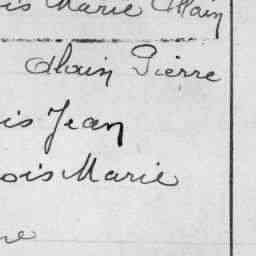 is Marie Alain
Alain Pierre
is Jean
ois Marie
ne